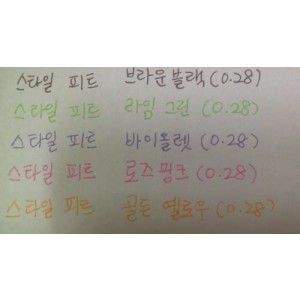 스타일 피트 브라운블랙(0.28)
스타일 피트 라임 그린 (0.28)
스타일 피트 바이올렛 (0.28)
스타일 피트 로즈핑크 (0.28)
스타일 피트 골든 옐로우 (0.28)